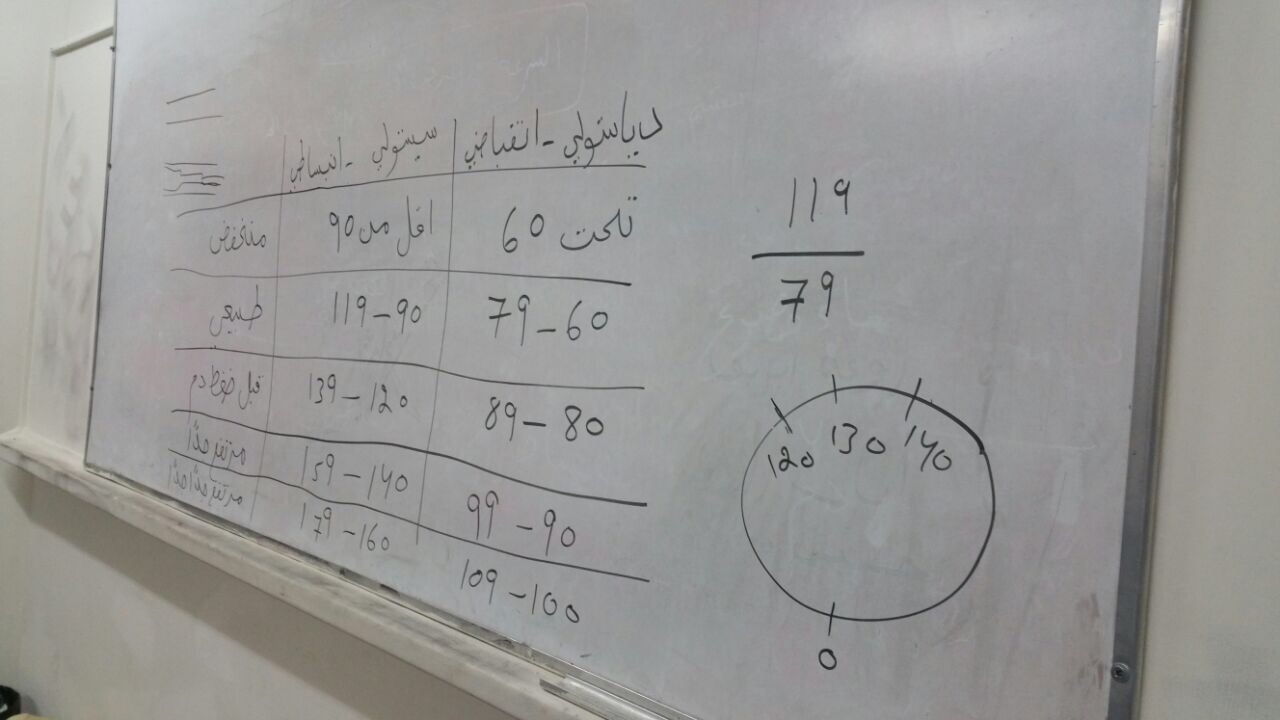 دياستولي - انقباضي | سيستولي - انبساطي
تحت 60 | اقل من 90 | منخفض
79 - 60 | 119 - 90 | طبيعي
89 - 80 | 139 - 120 | قبل ضغط دم
99 - 90 | 159 - 140 | مرتفع جداً
109 - 100 | 179 - 160 | مرتفع جداً جداً
119
79
120 130 140
0